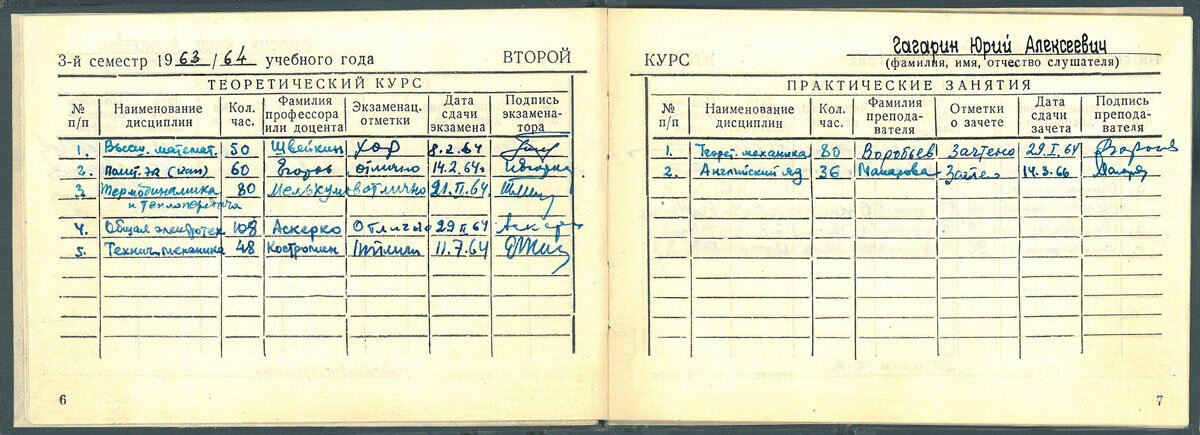 3-й семестр 1963/64 учебного года ВТОРОЙ
ТЕОРЕТИЧЕСКИЙ КУРС
№ п/п Наименование дисциплин Кол. час. Фамилия профессора или доцента Экзаменац. отметки Дата сдачи экзамена Подпись экзаменатора
1. Высш. математ. 50 Швейкин хор 8.2.64
2. Полит. эк (кап) 60 Егоров отлично 14.2.64
3. Термодинамика 80 отлично 21.II.64
и теплопередача
4. Общая электротех 108 Аскерко Отлично 29.II.64 Аскерко
5. Технич. механика 48 Костромин 11.7.64
6
КУРС Гагарин Юрий Алексеевич
(фамилия, имя, отчество слушателя)
ПРАКТИЧЕСКИЕ ЗАНЯТИЯ
№ п/п Наименование дисциплин Кол. час. Фамилия преподавателя Отметки о зачете Дата сдачи зачета Подпись преподавателя
1. Теорет. механика 80 Воробьев Зачтено 29.I.64
2. Английский яз 36 Макарова Зачтено
7